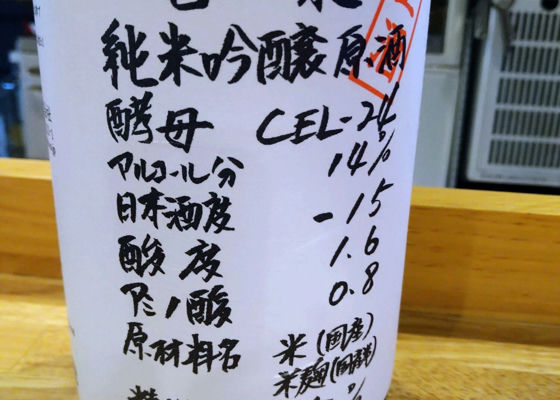 純米吟醸原酒
酵母 CEL-24
アルコール分 14%
日本酒度 -15
酸度 1.6
アミノ酸 0.8
原材料名 米(国産)
米麹(国産米)